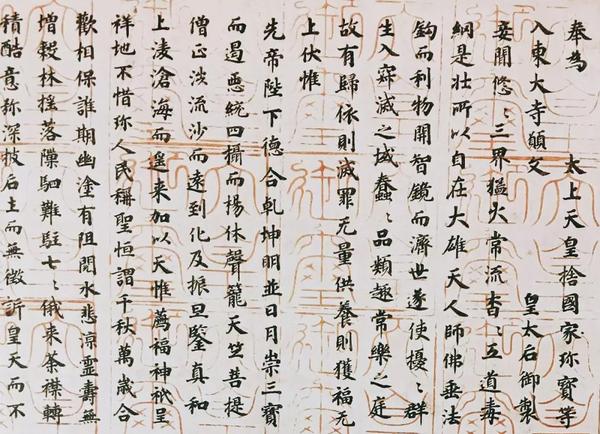 奉為　太上天皇捨國家珎寶等
入東大寺願文　皇太后御製
妾聞悠々三界猛火常流杳々五道毒
網是壮所以自在大雄天人師佛垂法
鈎而利物開智鏡而濟世遂使擾々群
生入寂滅之域蠢々品類趣常樂之庭
故有歸依則滅罪无量供養則獲福无
上伏惟
先帝陛下德合乾坤明並日月崇三寶
而遏惡統四攝而揚休聲籠天竺菩提
僧正涉流沙而遠到化及振旦鑒真和
上凌滄海而遙来加以天惟薦福神祇呈
祥地不惜珎人民稱聖恒謂千秋萬歳合
歡相保誰期幽塗有阻閱水悲涼靈壽無
增穀林揺落隙駟難駐七々俄来荼襟轉
積酷意弥深披后土而無徴訴皇天而不